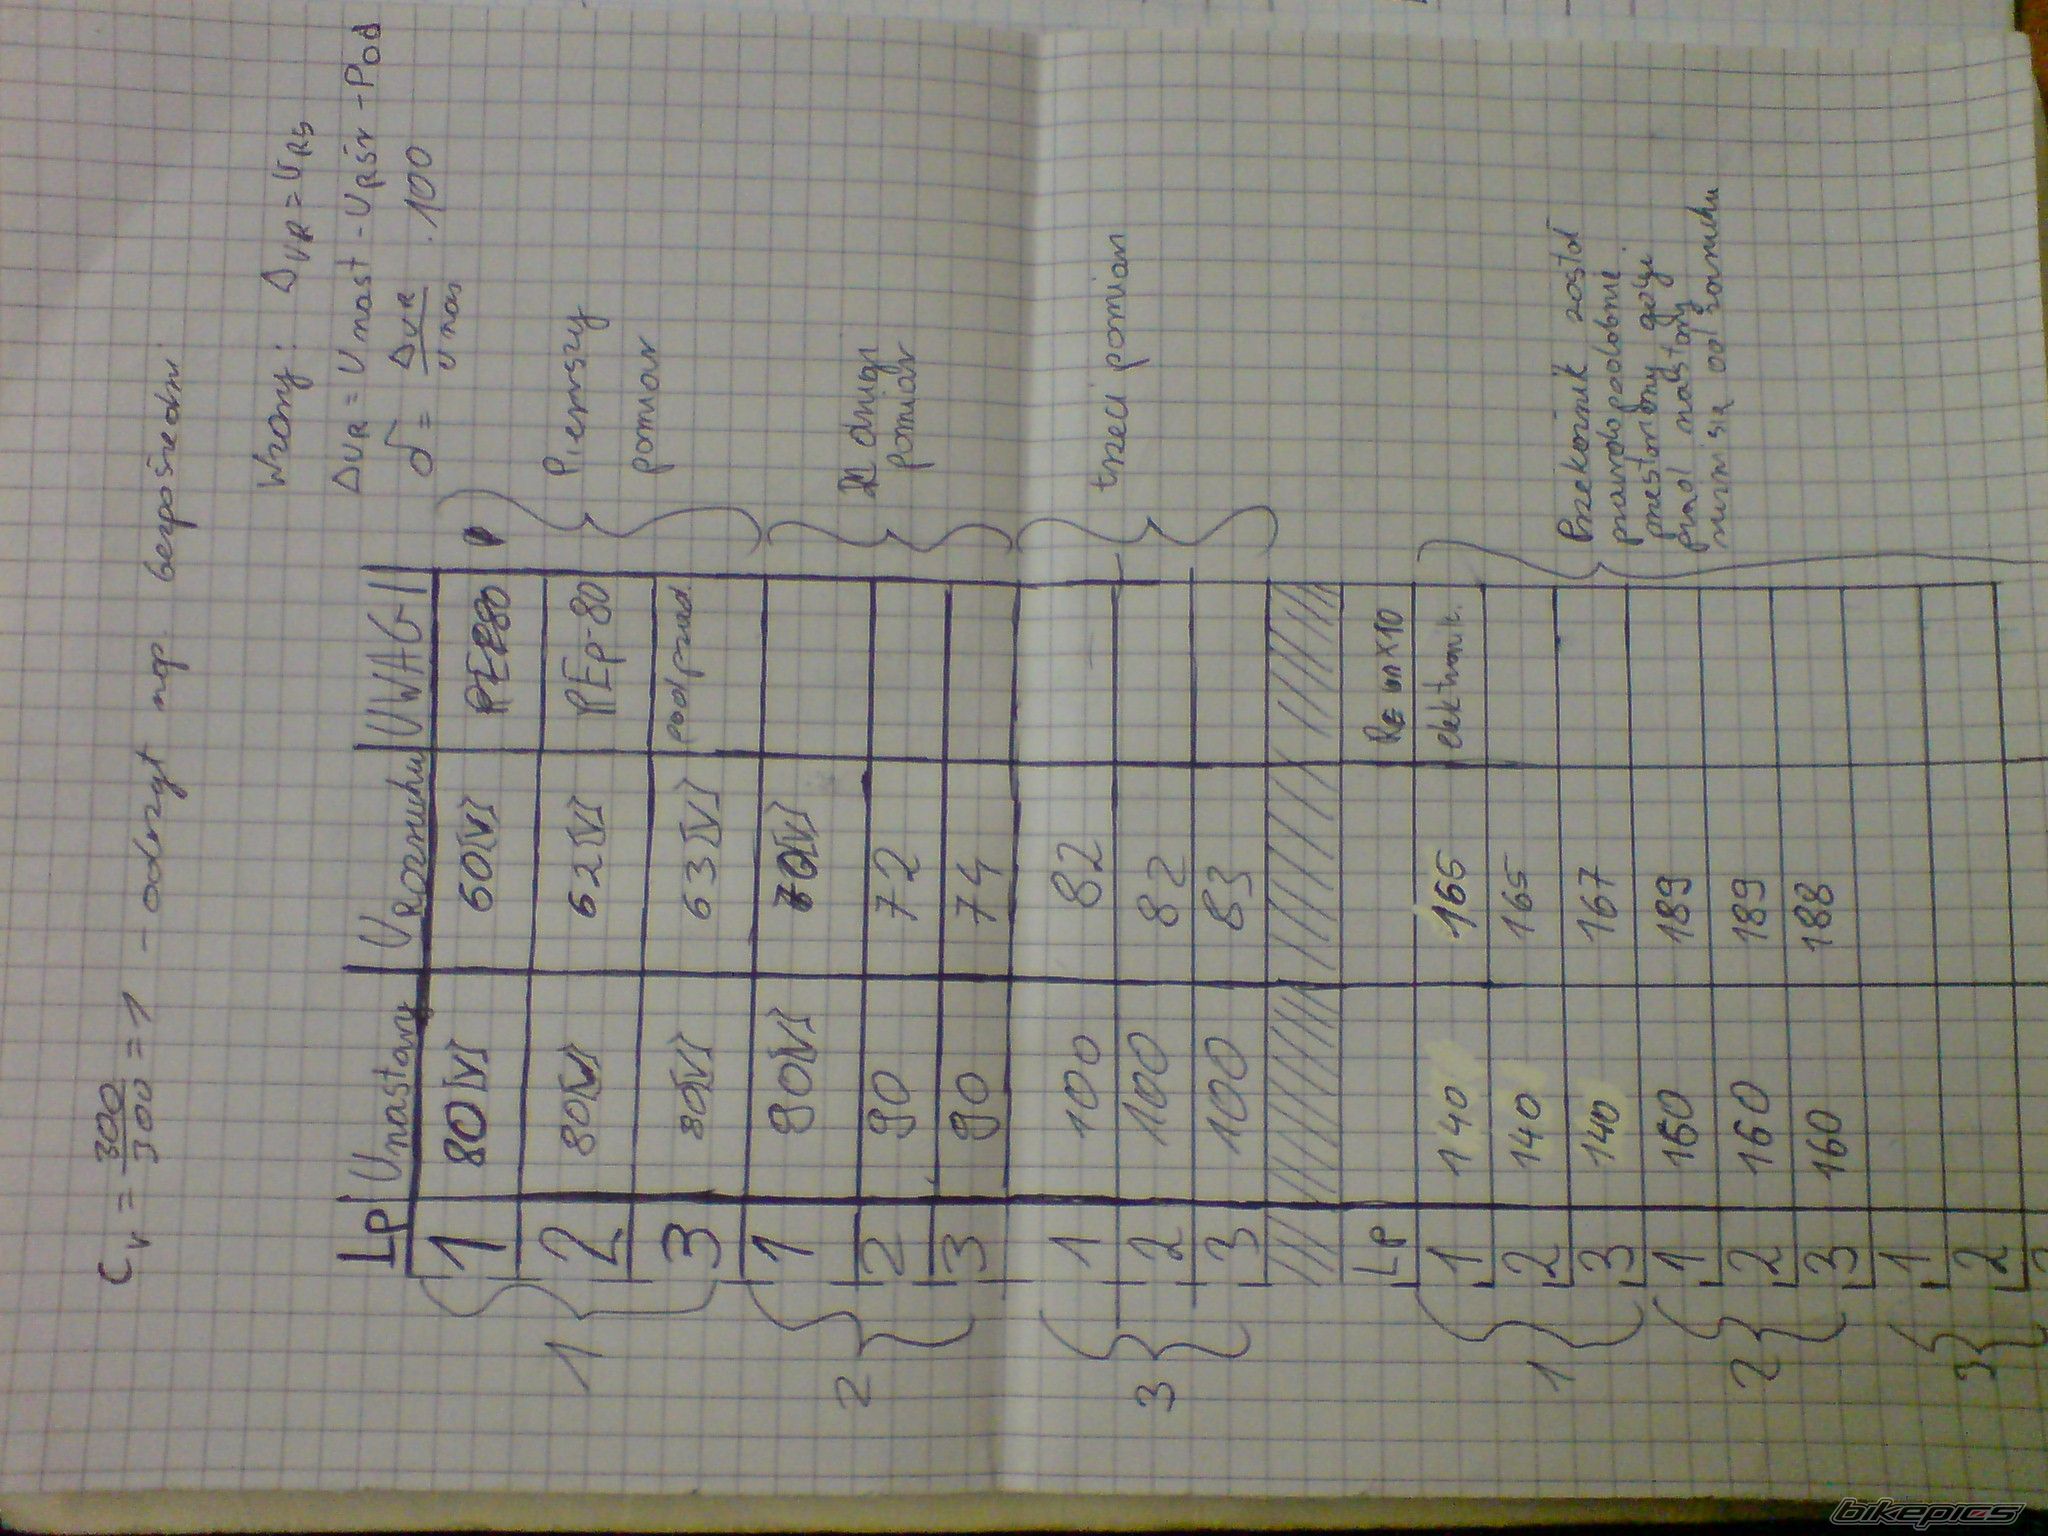 Cv = 300/300 = 1 - odczyt nap. bezpośredni
Wzory: ΔUR = URś
ΔUR = Unast - URśr - Pod
δ = ΔUR/Unas · 100
LP Unastawy URozruchu UWAGI
1 80[V] 60[V] PEP80
2 80[V] 62[V] PEp-80
3 80[V] 63[V] podprąd.
1 90[V] 70[V]
2 90 72
3 90 74
1 100 82
2 100 82
3 100 83
LP RE m×10
1 140 165 elektronik.
2 140 165
3 140 167
1 160 189
2 160 189
3 160 188
1
2
1
2
3
1
2
3
Pierwszy
pomiar
drugi
pomiar
trzeci pomiar
Przekaźnik został
prawdopodobnie
przestawiony gdyż
prąd nastawy
różni się od rozruchu
bikepics